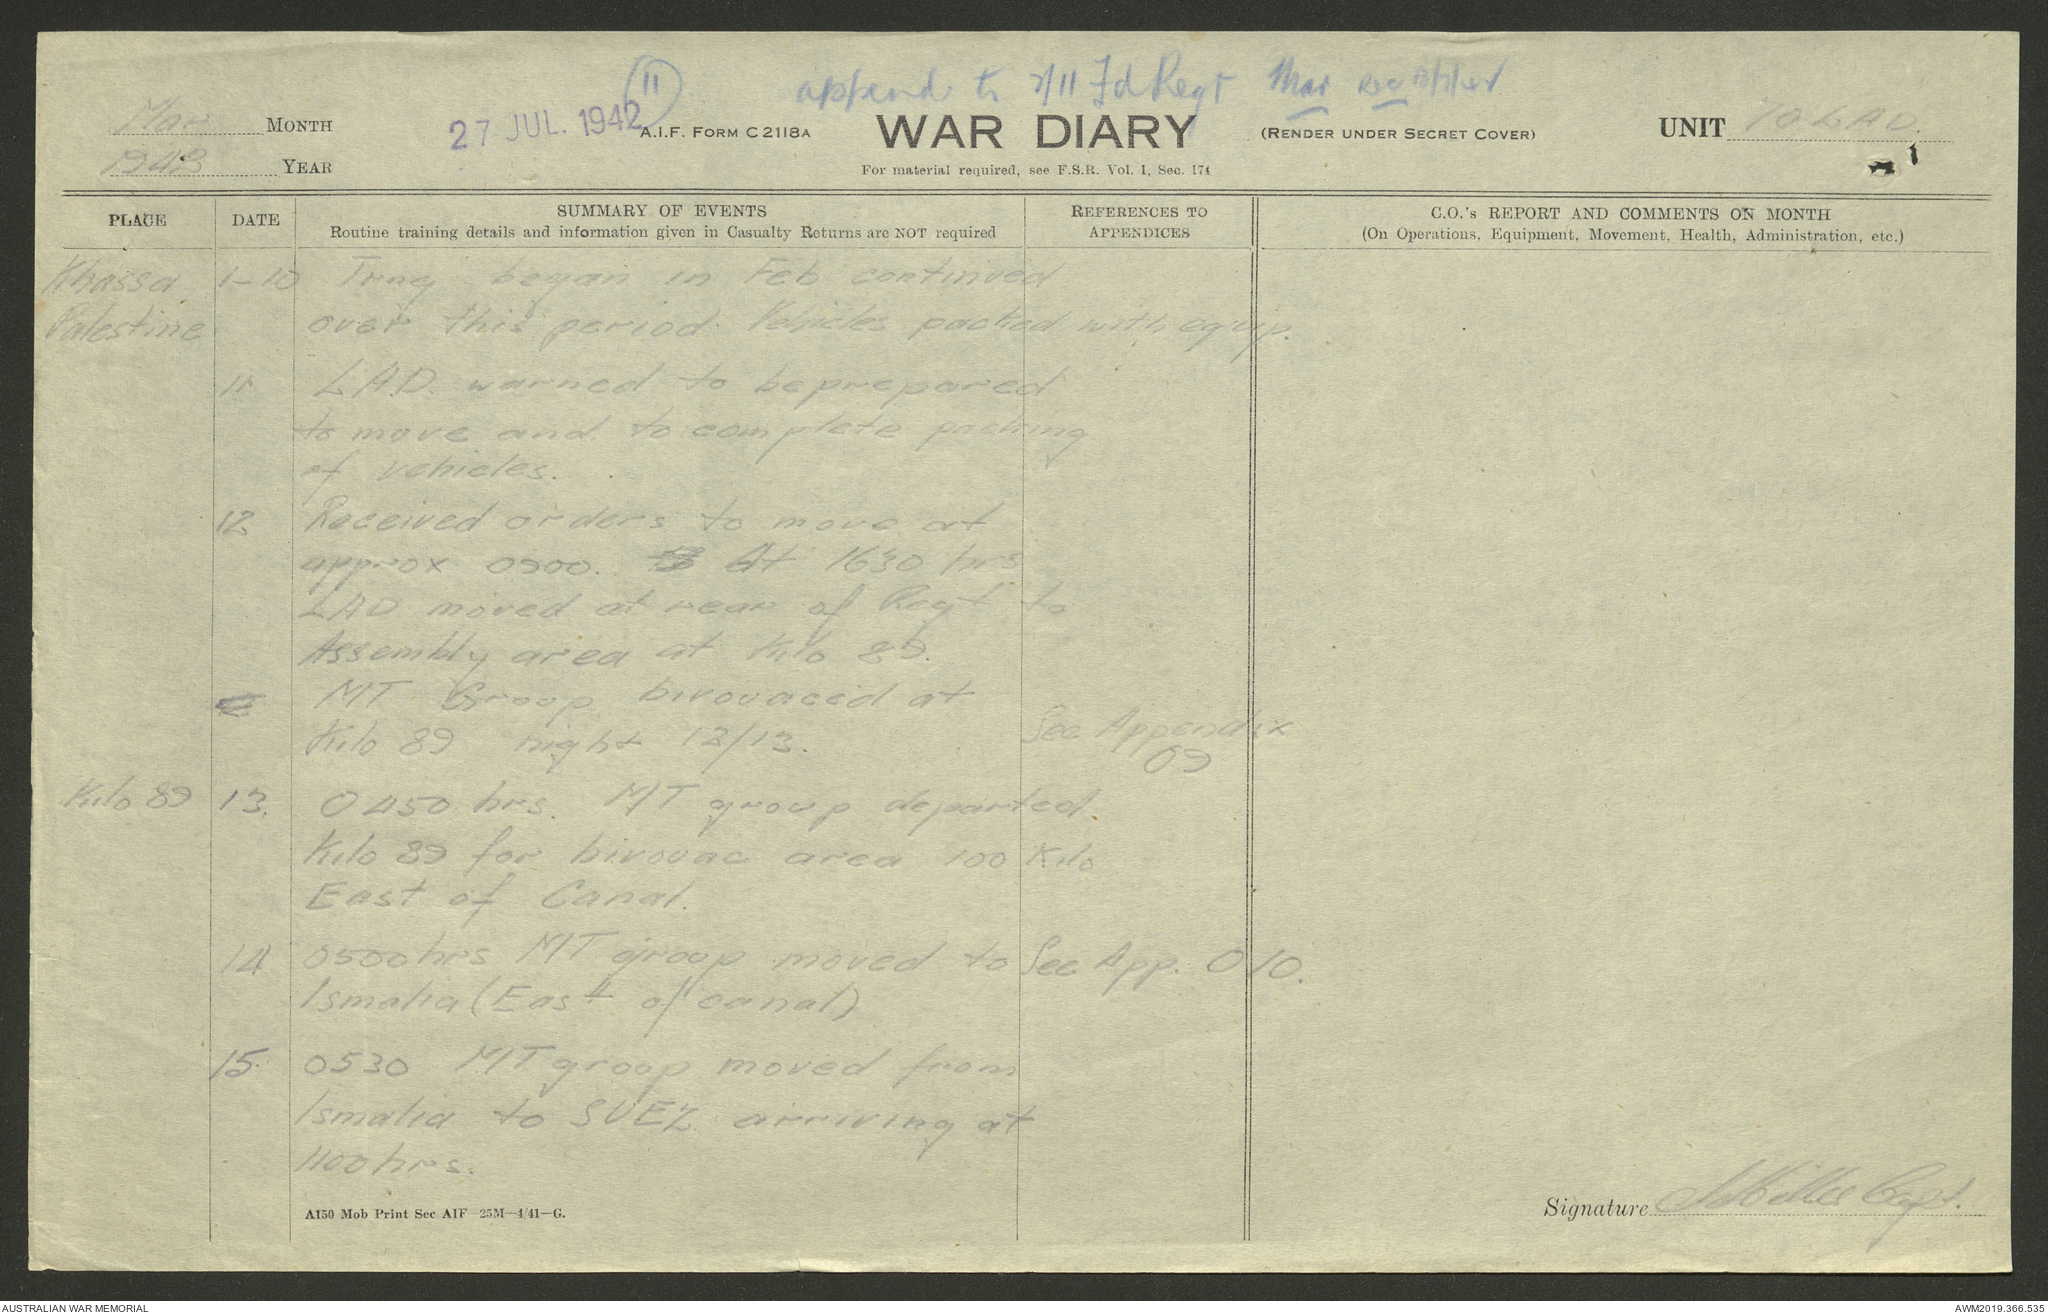 11
append to 2/11 Fd Regt Mar
Mar MONTH
27 JUL. 1942
A.I.F. FORM C2118A
WAR DIARY
(RENDER UNDER SECRET COVER)
UNIT 70 LAD.
1942 YEAR
For material required, see F.S.R. Vol. 1, Sec. 174
PLACE
DATE
SUMMARY OF EVENTS
Routine training details and information given in Casualty Returns are NOT required
REFERENCES TO
APPENDICES
C.O.'s REPORT AND COMMENTS ON MONTH
(On Operations, Equipment, Movement, Health, Administration, etc.)
Khassa 1-10 Trng began in Feb continued
Palestine over this period. Vehicles packed with equip.
11 L.A.D. warned to be prepared
to move and to complete packing
of vehicles.
12 Received orders to move at
approx 0900. At 1630 hrs
LAD moved at rear of Regt to
Assembly area at Kilo 89.
MT Group bivouaced at
Kilo 89 night 12/13. See Appendix
09
Kilo 89 13. 0450 hrs. MT group departed
Kilo 89 for bivouac area 100 Kilo
East of Canal.
14 0500hrs MT group moved to See App. 010.
Ismalia (East of canal)
15. 0530 MT group moved from
Ismalia to SUEZ arriving at
1100 hrs.
A150 Mob Print Sec AIF—25M—4/41—G.
Signature Capt.
AUSTRALIAN WAR MEMORIAL
AWM2019.366.535